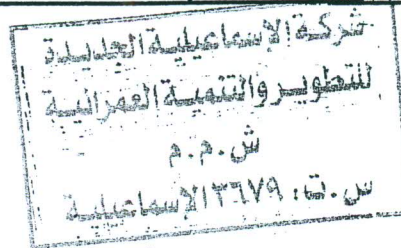 شركة الاسماعيلية الجديدة
للتطوير والتنمية العمرانية
ش.م.م
س.ت: ٣٦٦٧٩ الإسماعيلية